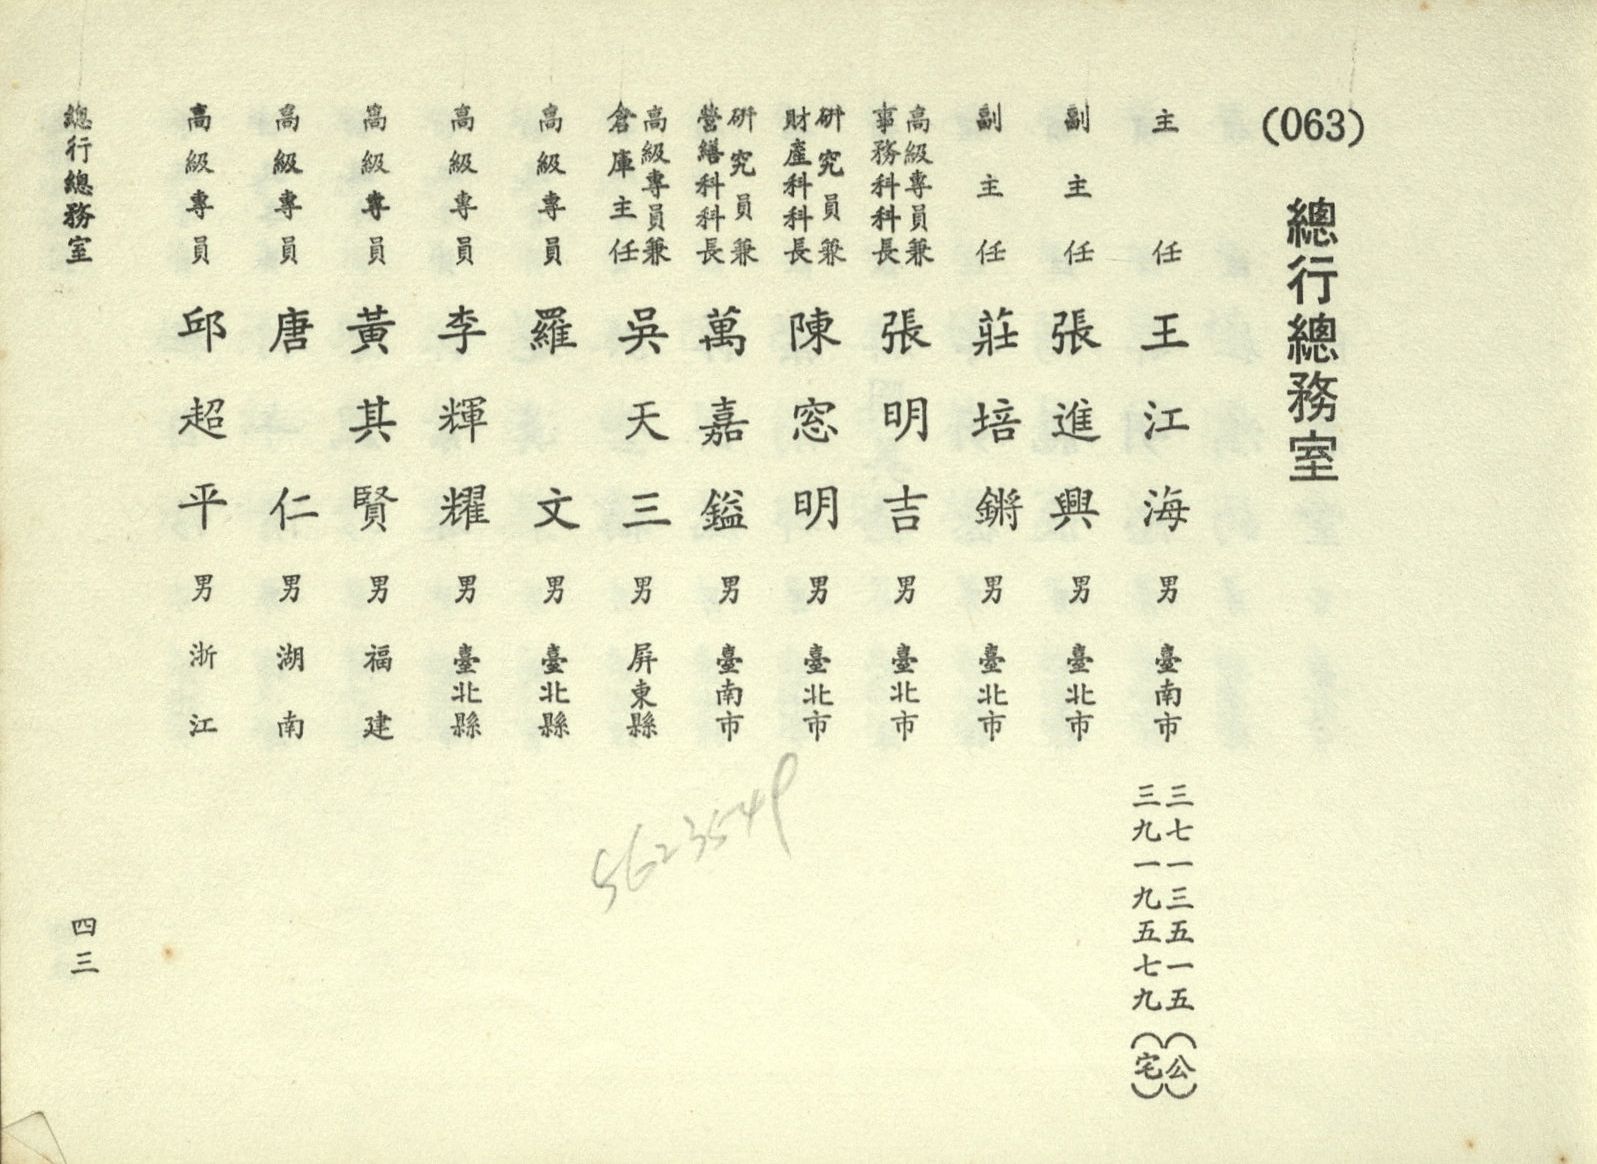 (063) 總行總務室
主任 王江海 男 臺南市 三七一三五一五(公)
三九一九五七九(宅)
副主任 張進興 男 臺北市
副主任 莊培鏘 男 臺北市
高級專員兼
事務科科長 張明吉 男 臺北市
研究員兼
財產科科長 陳窓明 男 臺北市
研究員兼
營繕科科長 萬嘉鎰 男 臺南市
高級專員兼
倉庫主任 吳天三 男 屏東縣
高級專員 羅文 男 臺北縣
高級專員 李輝耀 男 臺北縣
高級專員 黃其賢 男 福建
高級專員 唐仁 男 湖南
高級專員 邱超平 男 浙江
總行總務室
四三
5623549